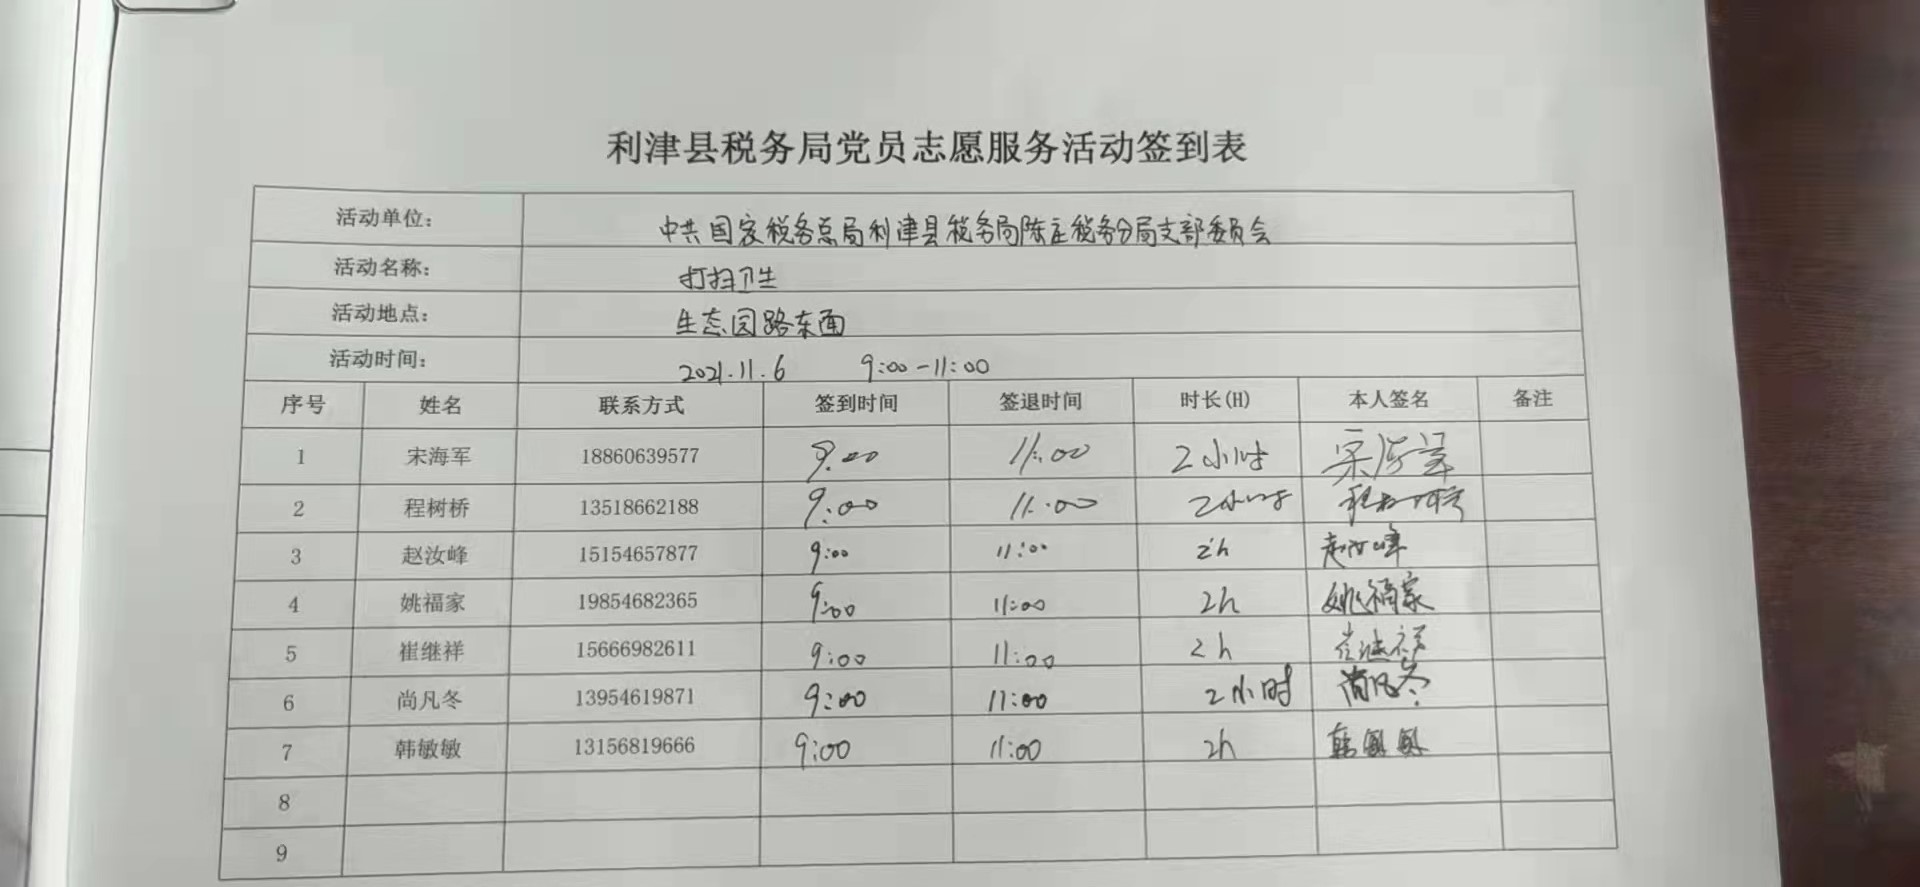 利津县税务局党员志愿服务活动签到表
活动单位： 中共国家税务总局利津县税务局陈庄税务分局支部委员会
活动名称： 打扫卫生
活动地点： 生态园路东面
活动时间： 2021.11.6 9:00-11:00
序号 姓名 联系方式 签到时间 签退时间 时长(H) 本人签名 备注
1 宋海军 18860639577 9:00 11:00 2小时 宋海军
2 程树桥 13518662188 9:00 11:00 2小时 程树桥
3 赵汝峰 15154657877 9:00 11:00 2h 赵汝峰
4 姚福家 19854682365 9:00 11:00 2h 姚福家
5 崔继祥 15666982611 9:00 11:00 2h 崔继祥
6 尚凡冬 13954619871 9:00 11:00 2小时 尚凡冬
7 韩敏敏 13156819666 9:00 11:00 2h 韩敏敏
8
9